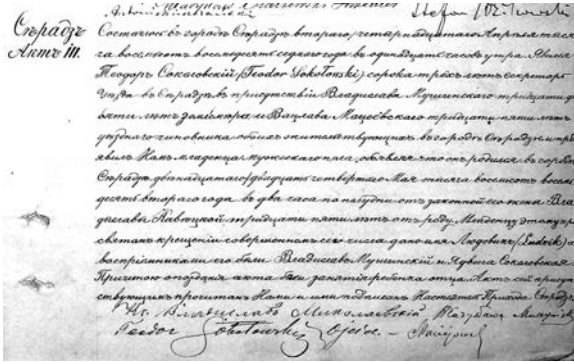 Stefan
Сѣрадзь
Актъ 111.
Состоялось въ городѣ Сѣрадзѣ втораго/четырнадцатаго Апрѣля тыся-
ча восемьсотъ восемьдесятъ седьмого года въ одинадцать часовъ утра. Явился
Теодоръ Соколовскій (Teodor Sokołowski) сорока трехъ лѣтъ секретарь
уѣзда въ Сѣрадзѣ въ присутствіи Владислава Мушинскаго тридцати де-
вяти лѣтъ и Вацлава тридцати пяти лѣтъ
уѣзднаго чиновника обоихъ жительствующихъ въ городѣ Сѣрадзѣ и предъ-
явилъ Намъ младенца мужескаго пола, объявляя что онъ родился въ городѣ
Сѣрадзѣ двѣнадцатаго/двадцать четвертаго Мая тысяча восемьсотъ восемь-
десятъ втораго года въ два часа по полудни отъ законной его жены Вла-
диславы тридцати пяти лѣтъ отъ роду. Младенцу этому при
святомъ крещеніи совершенномъ сего числа дано имя Людовикъ (Ludwik) а
воспріемниками его были Владиславъ Мушинскій и Ядвига Соколовская
Причиною опозданія акта были занятія отца. Актъ сей присут-
ствующимъ прочитанъ Нами и ими подписанъ. Настоятель Прихода Сѣрадзь
Кс. Владиславъ
Teodor Sokołowski Ojciec. —